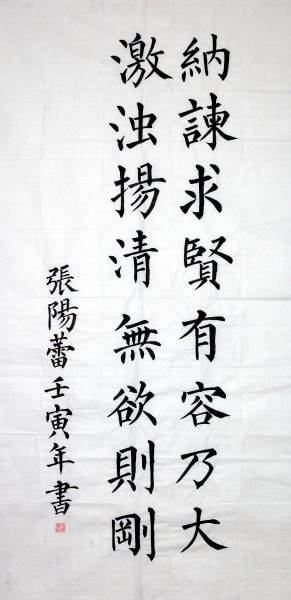 納諫求賢有容乃大
激浊揚清無欲則剛
張陽蕾壬寅年書